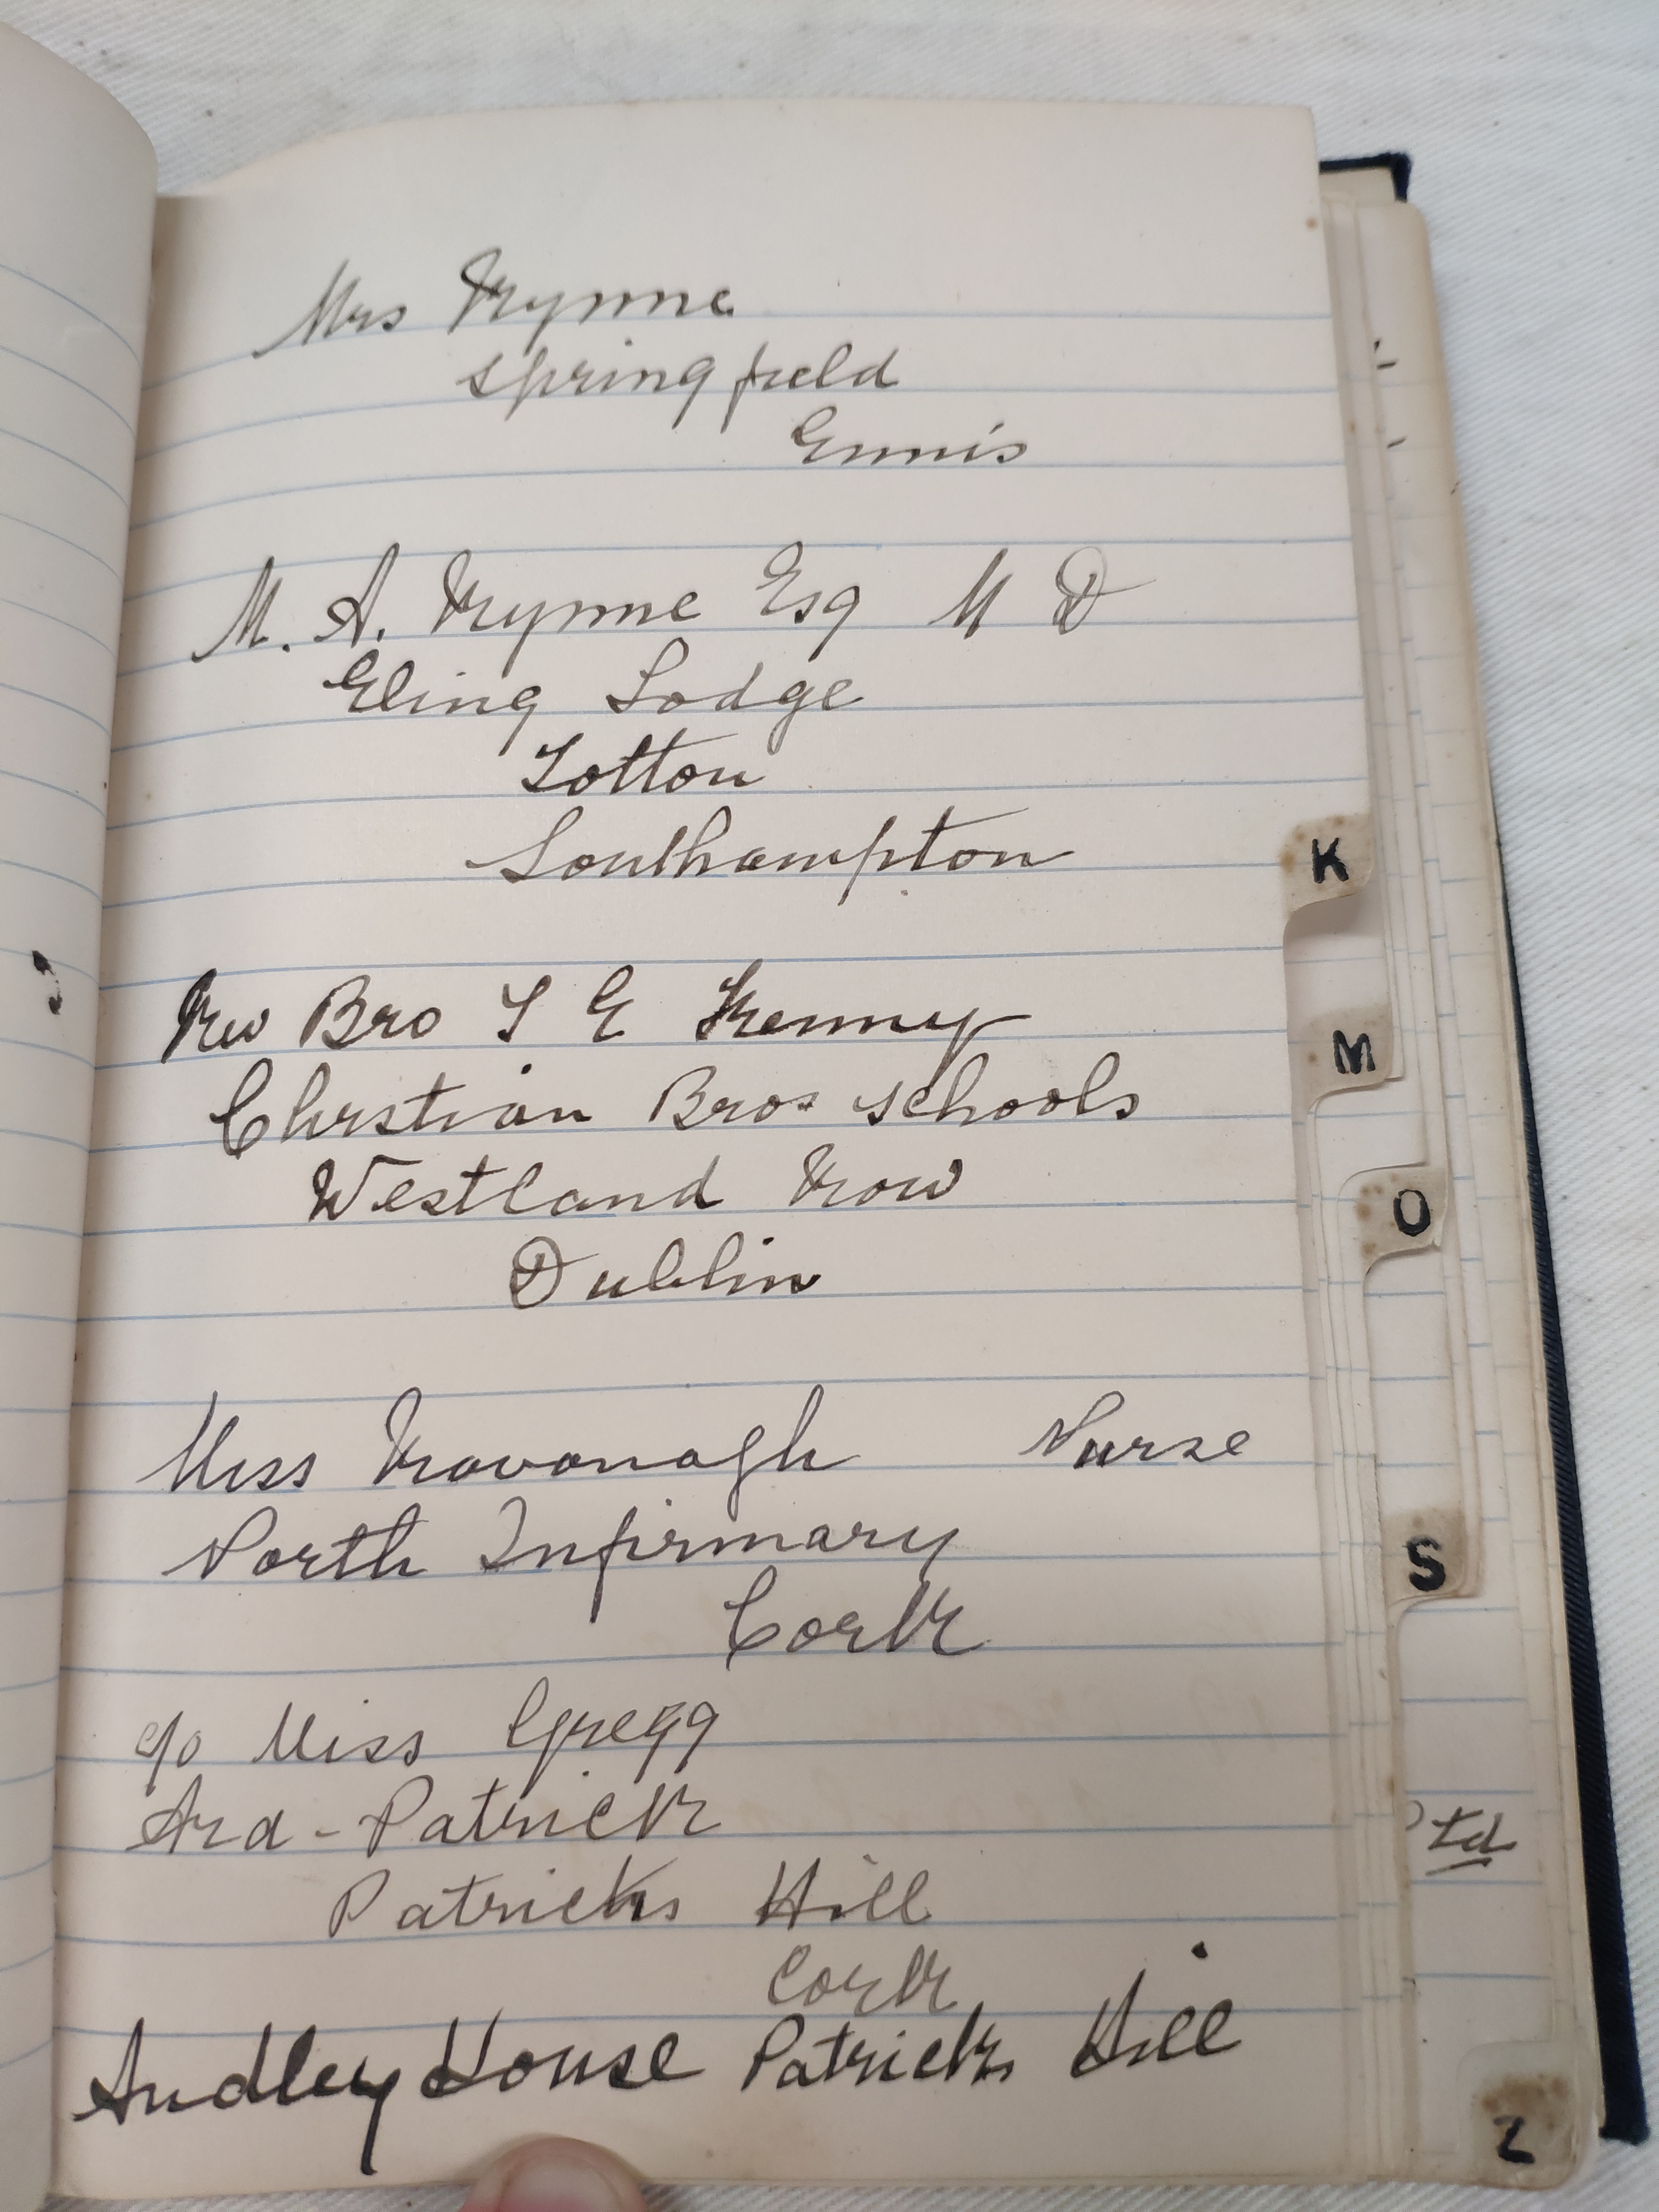 Mrs Kynne
springfield
Ennis
M. A. Kynne Esq M D
Eling Lodge
Totton
Southampton
Rev Bro T E Kenny
Chrstian Bros schools
Westland Row
Dublin
Miss Kavanagh Nurse
North Infirmary
Cork
c/o Miss Gregg
Ard-Patrick
Patricks Hill
Cork
Audley House Patricks Hill
K
M
O
S
td
Z